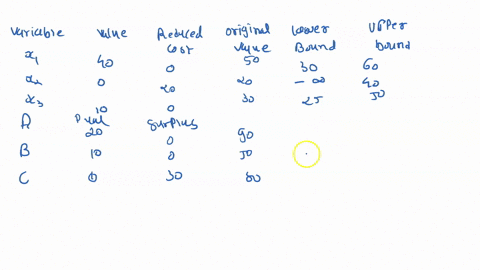 Variable Value Reduced cost original value Lower Bound Upper bound
x1 40 0 50 30 60
x2 0 20 20 -∞ 40
x3 10 0 30 25 50
A Dual 20 Surplus 0 90
B 10 0 50
C 0 30 80